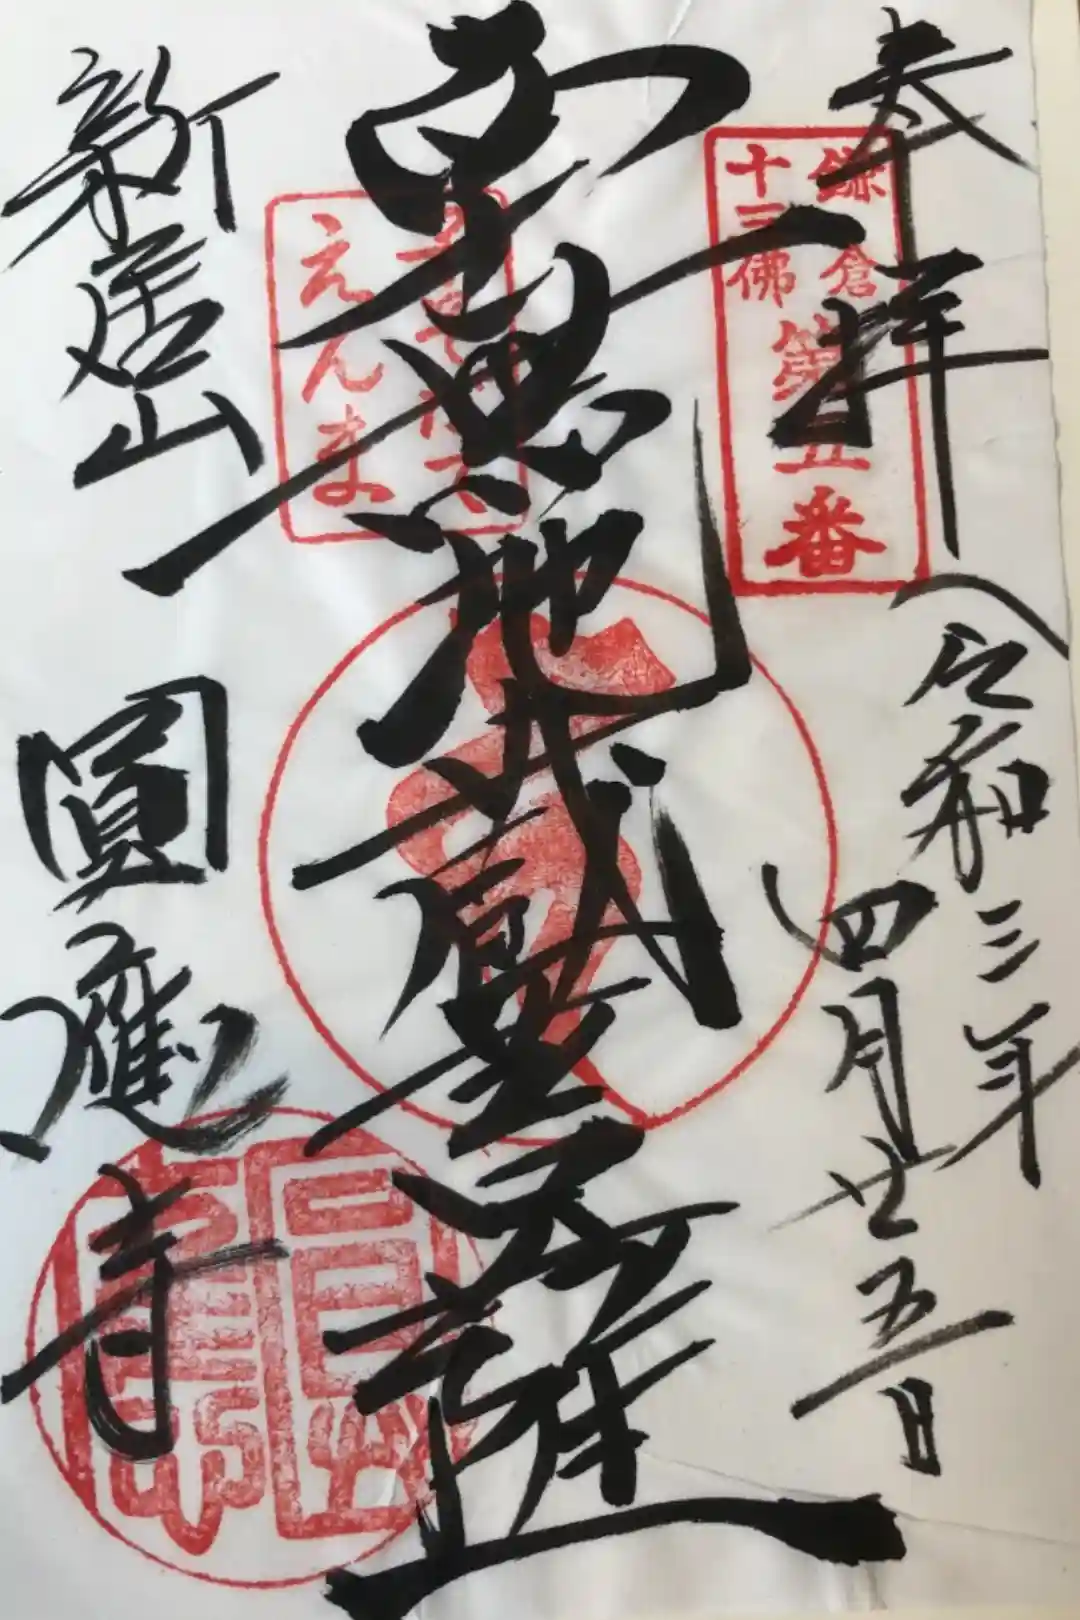 奉拝
令和三年
四月廿五日
鎌倉
十三佛
第五番
地蔵菩薩
えんま
新居山
圓應寺